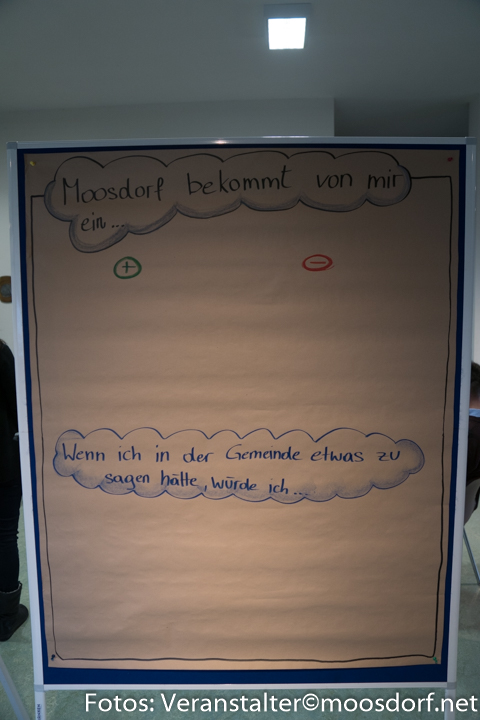 Moosdorf bekommt von mir
ein...
+ −
Wenn ich in der Gemeinde etwas zu
sagen hätte, würde ich...
Fotos: Veranstalter©moosdorf.net